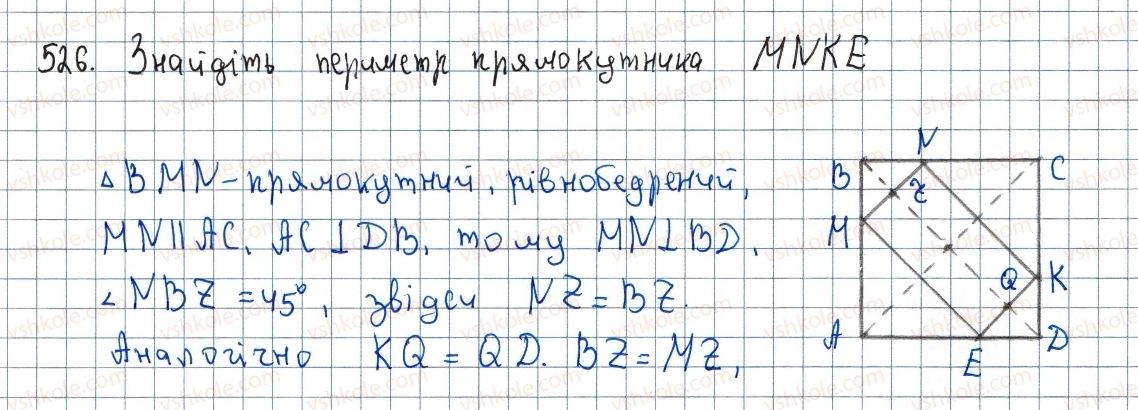 526. Знайдіть периметр прямокутника MNKE
△ BMN – прямокутний, рівнобедрений,
MN || AC, AC ⊥ DB, тому MN ⊥ BD,
∠ NBZ = 45°, звідси NZ = BZ.
Аналогічно KQ = QD. BZ = MZ,
N
B
Z
C
M
Q
K
A
E
D
vshkole.com